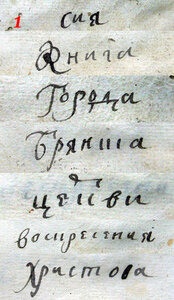 1 сия
Книга
Города
Брянска
церкви
воскресения
Христова